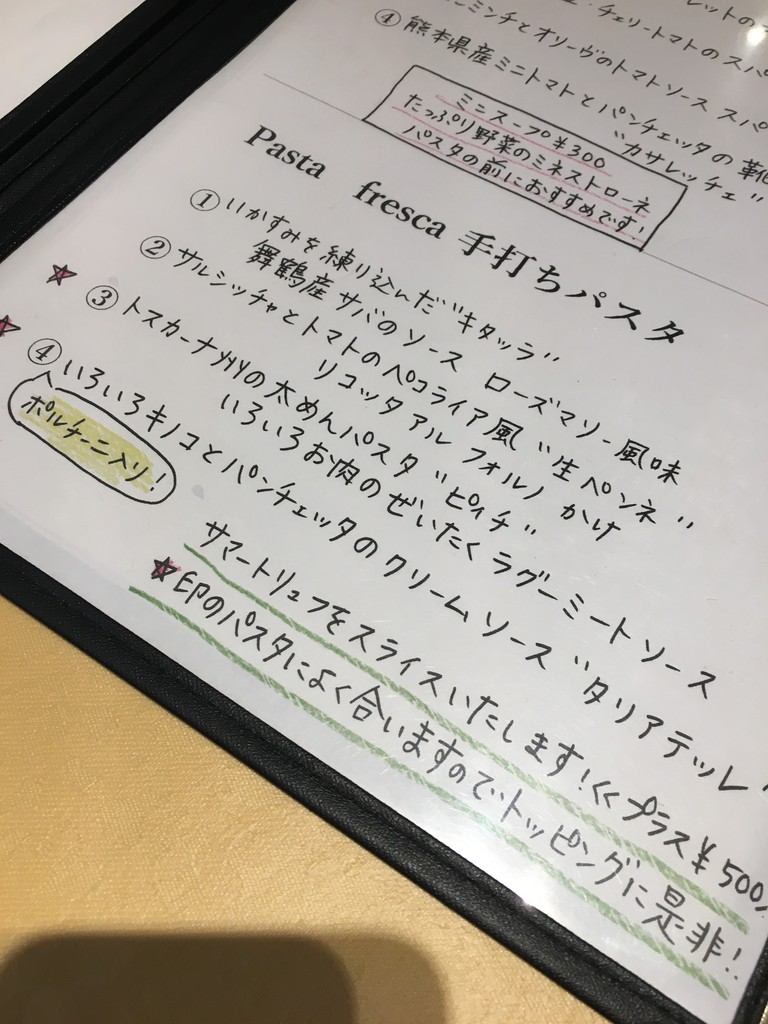 レットの
・チェリートマトのスパ
ミンチとオリーヴのトマトソース スパ
④ 熊本県産ミニトマトとパンチェッタの
"カサレッチェ"
ミニスープ¥300
たっぷり野菜のミネストローネ
パスタの前におすすめです!
Pasta fresca 手打ちパスタ
① いかすみを練り込んだ"キタッラ"
舞鶴産サバのソース ローズマリー風味
② サルシッチャとトマトのペコライア風 "生ペンネ"
リコッタ アル フォルノ かけ
★ ③ トスカーナ州の太めんパスタ "ピィチ"
いろいろお肉のぜいたくラグーミートソース
★ ④ いろいろキノコとパンチェッタのクリームソース "タリアテッレ"
ポルチーニ入り!
サマートリュフをスライスいたします!≪プラス¥500
★印のパスタによく合いますのでトッピングに是非!!